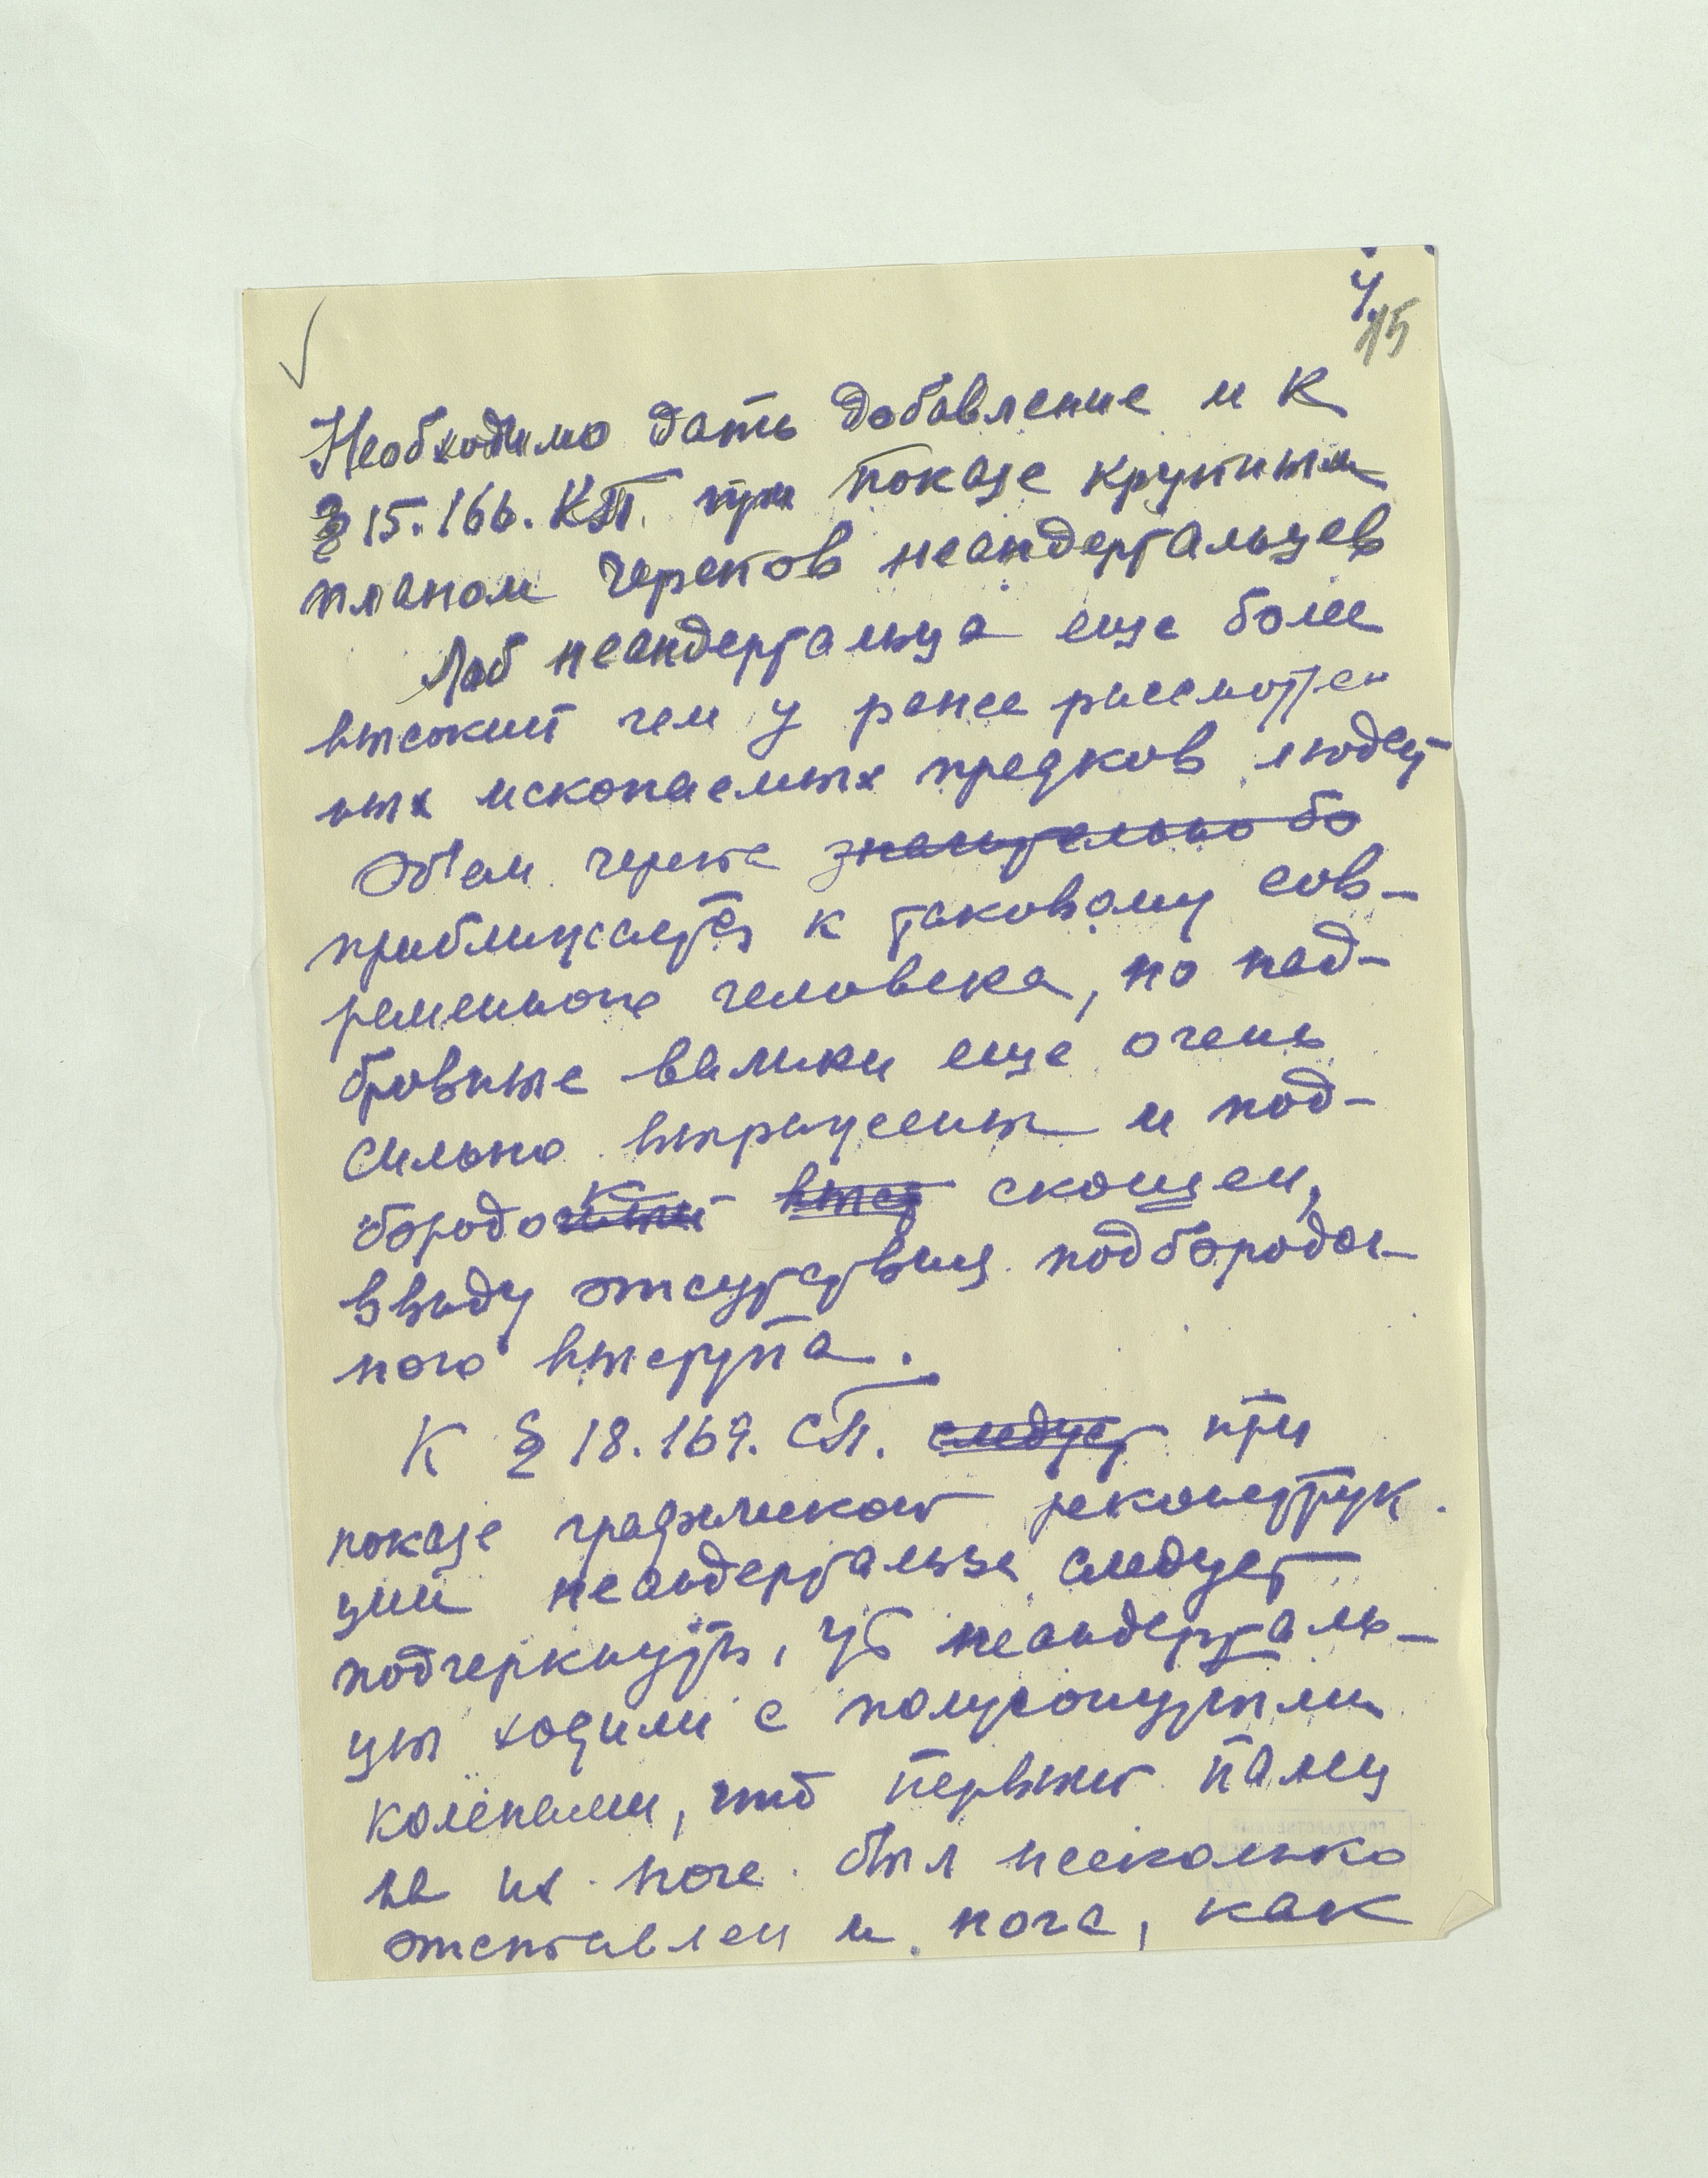 4
15
Необходимо дать добавление и к
§ 15.166. КП. при показе крупным
планом черепов неандертальцев
Лоб неандертальца еще более
высокий чем у ранее рассмотрен
ных ископаемых предков людей
Объем черепа значительно бо
приближается к таковому сов-
ременного человека, но над-
бровные валики еще очень
сильно выражены и под-
бородок скошен,
ввиду отсутствия подбородоч-
ного выступа.
К § 18.169. СП. следует при
показе графической реконструк
ции неандертальца следует
подчеркнуть, что неандерталь-
цы ходили с полусогнутыми
коленами, что первый палец
на их ноге был несколько
отставлен и нога, как